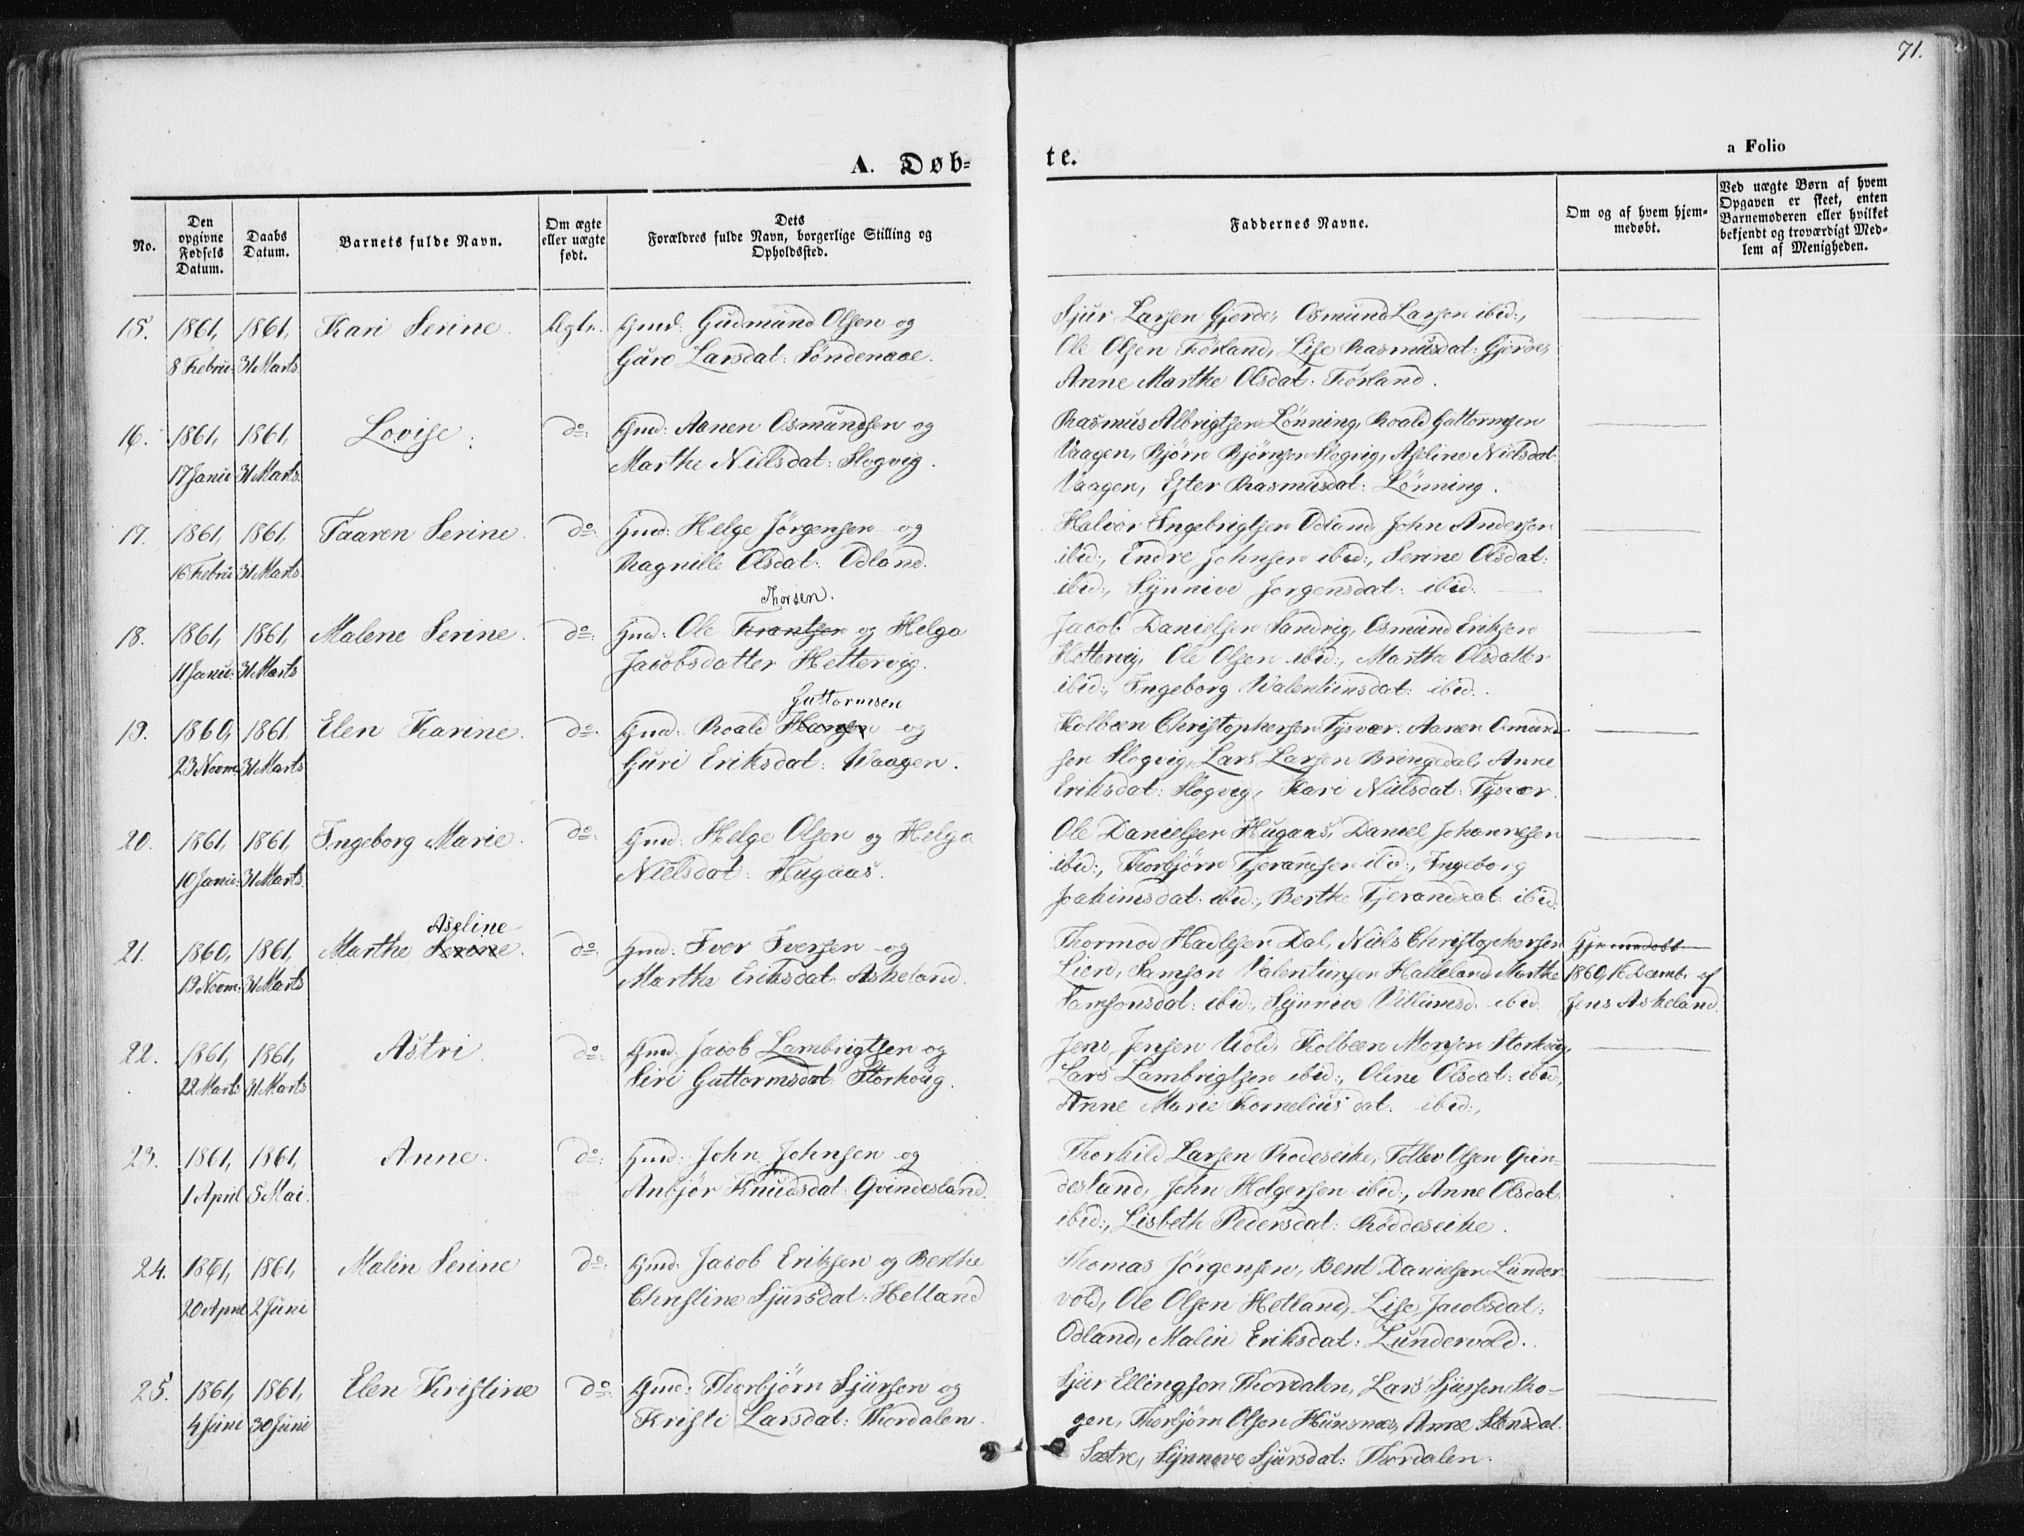 71.
A. Døb-
te.
a Folio
No.
Den opgivne Fødsels Datum.
Daabs Datum.
Barnets fulde Navn.
Om ægte eller uægte født.
Dets Forældres fulde Navn, borgerlige Stilling og Opholdssted.
Faddernes Navne.
Om og af hvem hjemmedøbt.
Ved uægte Børn af hvem Opgaven er skeet, enten Barnemoderen eller hvilket bekjendt og troværdigt Medlem af Menigheden.
15. 1861, 1861, Kari Serine. Ægte. Gmd: Gudmund Olsen og
8 Febru: 31 Marts Guro Larsdat: Søndenaae.
Sjur Larsen Gjerde, Osmund Larsen ibid:,
Ole Olsen Førland, Lise Rasmusdat: Gjerde,
Anne Marthe Olsdat: Førland.
16. 1861, 1861, Lovise. do: Gmd: Aanen Osmundsen og
17 Janu 31 Marts Marthe Nielsdat: Slogvig.
Rasmus Albrigtsen Lønning, Roald Guttormsen
Vaagen, Bjørn Bjørnsen Slogvig, Aseline Nielsdat
Vaagen, Ester Rasmusdat: Lønning.
17. 1861, 1861. Taaren Serine. do: Gmd: Helge Jørgensen og
16 Febru 31 Marts Ragnille Olsdat: Odland.
Halvor Ingebrigtsen Odland, John Andersen
ibid:, Endre Johnsen ibid:, Serine Olsdat:
ibid:, Synnive Jørgensdat: ibid.
Thorsen.
18. 1861, 1861, Malene Serine. do: Gmd: Ole Frantsen og Helga
11 Janu: 31 Marts Jacobsdatter Hettervig.
Jacob Danielsen Sandvig, Osmund Eriksen
Hettervig, Ole Olsen ibid:, Martha Olsdatter
ibid:, Ingeborg Valentinsdat: ibid.
Guttormsen
19. 1860, 1861. Elen Karine. do. Gmd: Roald Hansen og
23 Novm. 31 Marts Guri Eriksdat: Vaagen.
Kolbeen Christophersen Tysvær. Aanen Osmund-
sen Slogvig, Lars Larsen Bringedal, Anne
Eriksdat: Slogvig, Kari Nielsdat: Tysvær.
20. 1861, 1861, Ingeborg Marie. do: Gmd: Helge Olsen og Helga
10 Janu: 31 Marts Nielsdat: Hugaas.
Ole Danielsen Hugaas, Daniel Johannesen
ibid:, Thorbjørn Tjerandsen ibid:, Ingeborg
Joakimsdat: ibid:, Berthe Tjerandsdat: ibid.
Aseline
21. 1860, 1861, Marthe Serine. do: Gmd: Iver Iversen og
19 Novm: 31 Marts Martha Eriksdat: Askeland.
Thormod Hadlesen Dal, Niels Christophersen
Lien, Samson Valentinsen Halleland, Marthe
Samsonsdat: ibid:, Synneve Villumsd: ibid.
Hjemmedøbt
1860, 16 Decmb. af
Jens Askeland.
22. 1861, 1861, Astri. do: Gmd: Jacob Lambrigtsen og
22 Marts 31 Marts Siri Guttormsdat: Storhoug.
Jens Jensen Uold, Kolbeen Monsen Storhoug,
Lars Lambrigtsen ibid:, Oline Olsdat: ibid,
Anne Marie Kornelius dat. ibid:,
23. 1861, 1861, Anne. do: Gmd: John Johnsen og
1 April 5 Mai. Anbjør Knudsdat: Qvindesland.
Thorkild Larsen Rødeseike, Tollev Olsen Qvin-
desland, John Holgersen ibid:, Anne Olsdat.
ibid:, Lisbeth Pedersdat: Røddeseike.
24. 1861, 1861, Malin Serine do: Gmd: Jacob Eriksen og Berthe
20 April 2 Juni Christine Sjursdat: Hetland
Thomas Jørgensen, Bent Danielsen Lunder-
vold, Ole Olsen Hetland, Lise Jacobsdat:
Odland, Malin Eriksdat: Lundervold.
25. 1861, 1861, Elen Kristine do: Gmd: Thorbjørn Sjursen og
4 Juni 30 Juni Kristi Larsdat: Thordalen.
Sjur Ellingsen Thordalen, Lars Sjursen Sko-
gen, Thorbjørn Olsen Huusnæs, Anne Stensdat.
Sætre, Synneve Sjursdat: Thordalen.